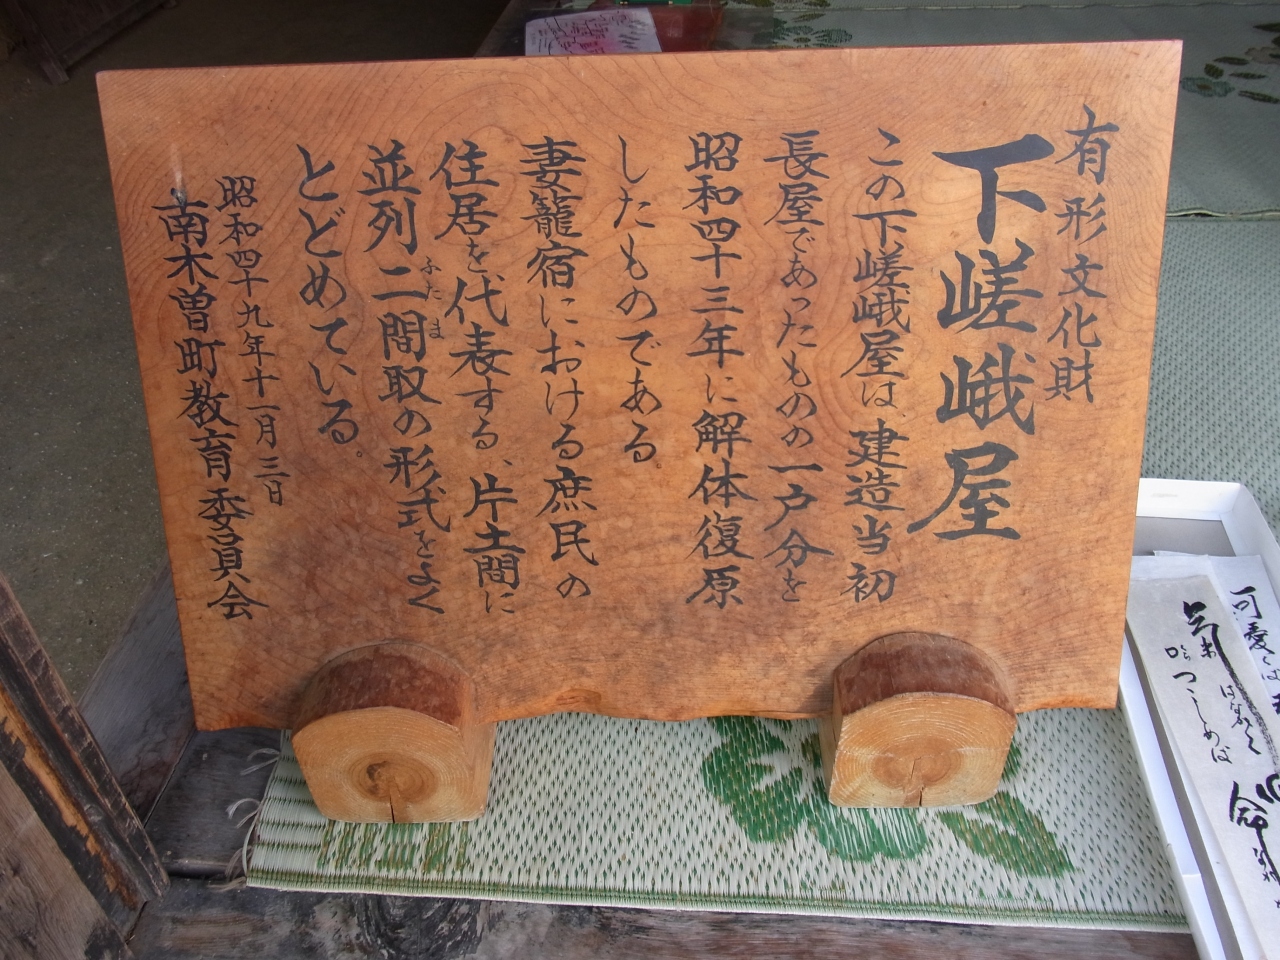 有形文化財
下嵯峨屋
この下嵯峨屋は、建造当初
長屋であったものの一戸分を
昭和四十三年に解体復原
したものである。
妻籠宿における庶民の
住居を代表する、片土間に
並列二間取の形式をよく
ふたま
とどめている。
昭和四十九年十一月三日
南木曽町教育委員会